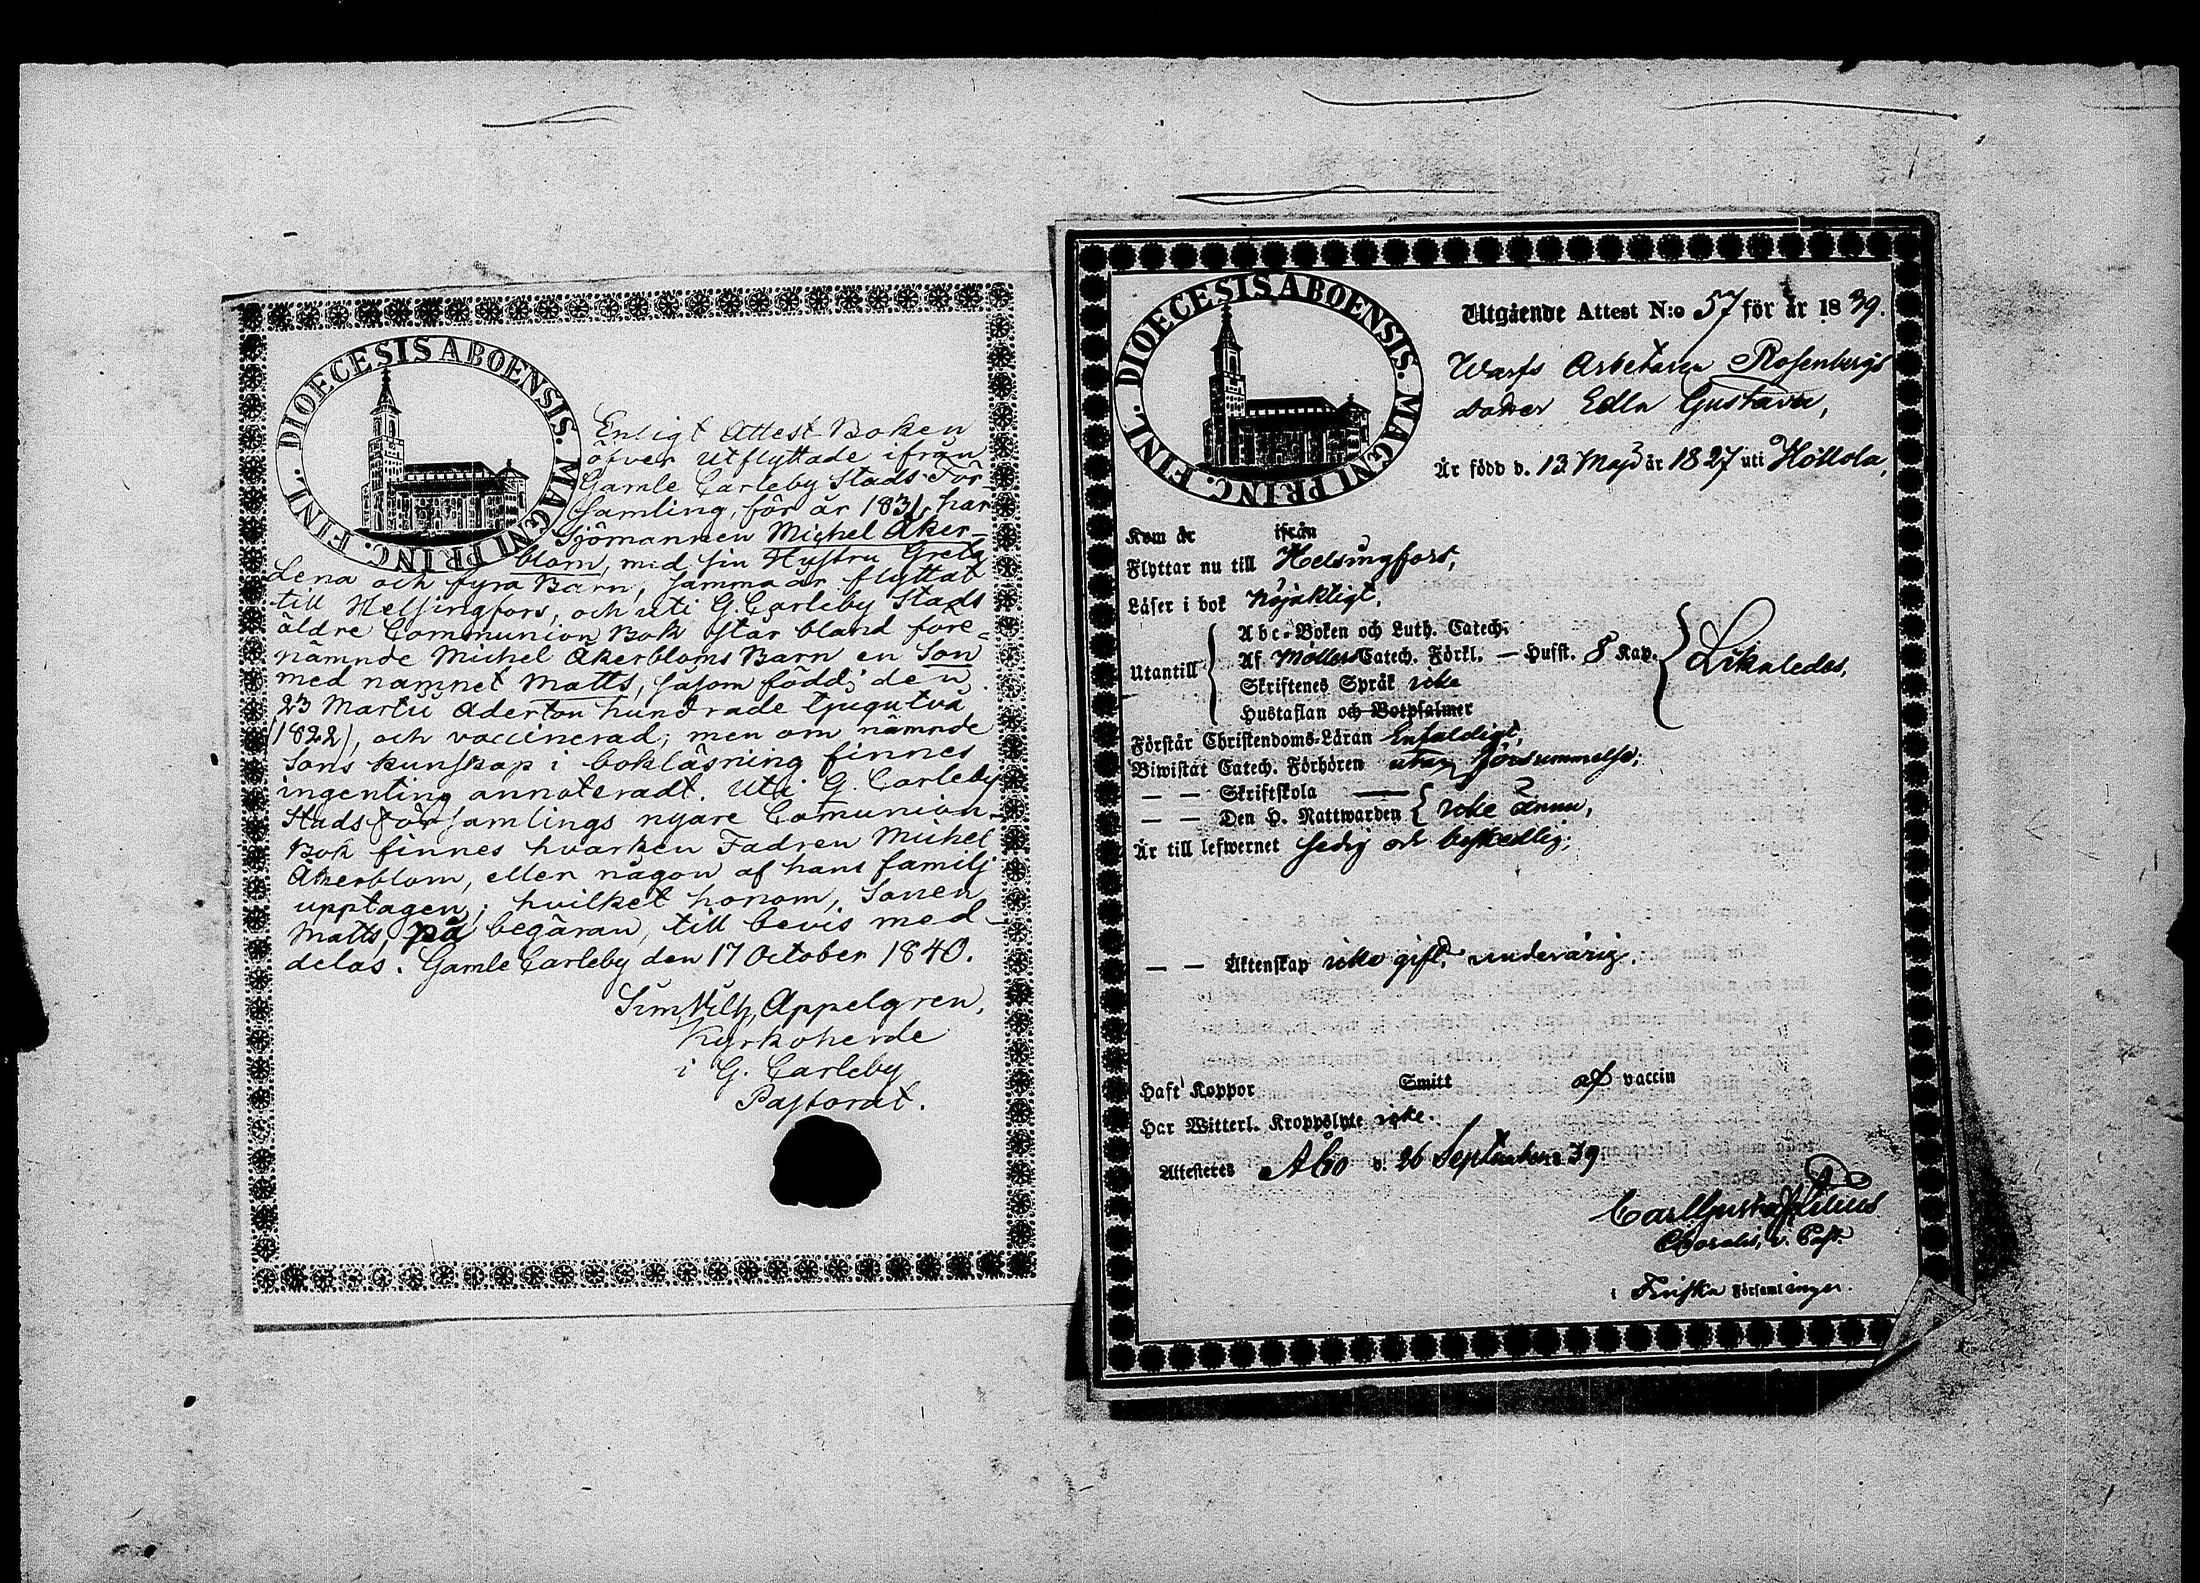 DIOECESIS ABOENSIS. MAGNI PRINC. FINL.
Enligt Attest Boken
öfver utflyttade ifrån
Gamle Carleby Stads För-
samling, för år 1831, har
Sjömannen Michel Åker-
blom, med sin Hustru Greta
Lena och fyra Barn, samma år flyttat
till Helsingfors, och uti G. Carleby Stads
äldre Communion Bok står bland före-
nämnde Michel Åkerbloms Barn en Son
med namnet Matts, såsom född den
23 Martii Adertonhundrade tjugutvå
(1822), och vaccinerad; men om nämnde
Sons kunskap i bokläsning finnes
ingenting annoteradt. Uti G. Carleby
Stads Församlings nyare Comunion-
Bok finnes hvarken Fadren Michel
Åkerblom, eller någon af hans familj
upptagen; hvilket honom, Sonen
Matts, på begäran, till bevis med-
delas. Gamle Carleby den 17 October 1840.
Sim. Vilh. Appelgren,
Kyrkoherde
i G. Carleby
Pastorat.
DIOECESIS ABOENSIS. MAGNI PRINC. FINL.
Utgående Attest N:o 57 för år 1839.
Warfs Arbetaren Rosenbergs
dotter Edla Gustava,
Är född d. 13 Maji år 1827 uti Hollola,
Kom år ifrån
Flyttar nu till Helsingfors,
Läser i bok Nöjaktigt,
Utantill
Abc-Boken och Luth. Catech.
Af Möllers Catech. Förkl. — Hufst. 8 Kap.
Skriftenes Språk icke
Hustaflan och Botpsalmer
Likaledes,
Förstår Christendoms-Läran Enfaldigt,
Biwistat Catech. Förhören utan försummelse;
— — Skriftskola
— — Den H. Nattwarden icke ännu,
Är till lefwernet sedig och beskedlig;
— — Äktenskap icke gift, undervärig.
Haft Koppor Smitt af vaccin
Har Witterl. Kroppslyte icke.
Attesteras Åbo d. 26 September 1839
Carl Gustaf
v. Past.
i Finska Församlingen.